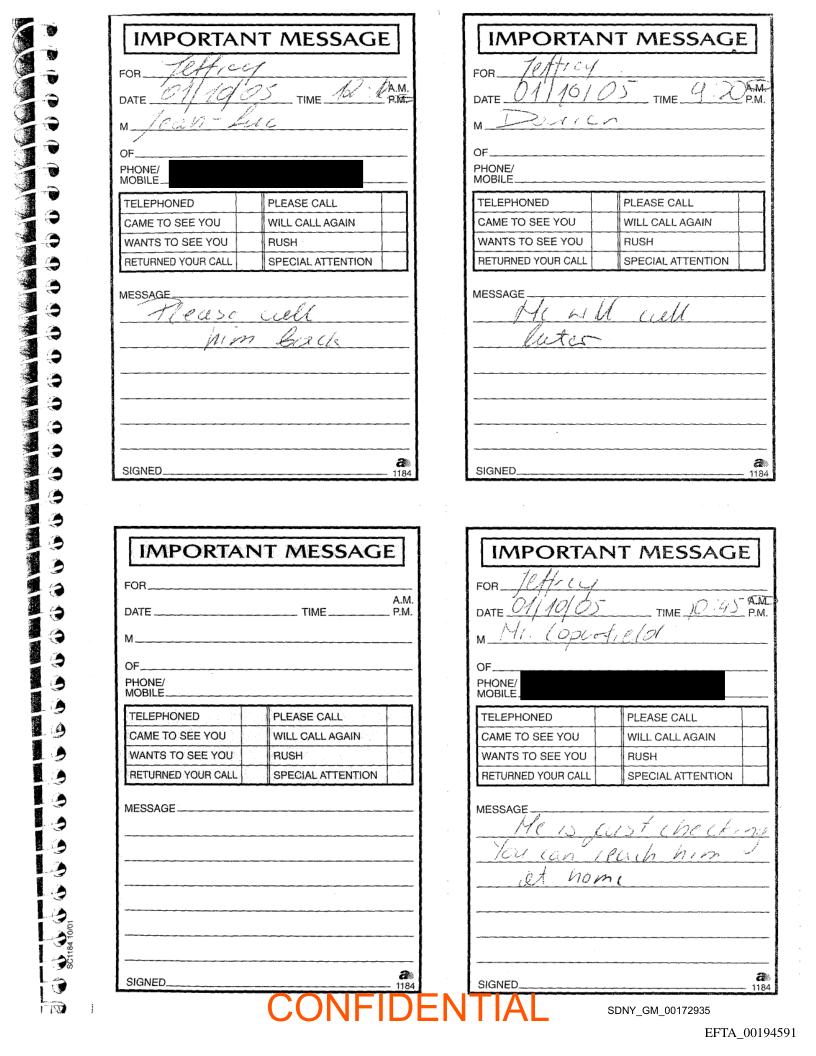 IMPORTANT MESSAGE
FOR Jeffrey
DATE 01/10/05 TIME A.M.
P.M.
M Jean-Luc
OF
PHONE/
MOBILE
TELEPHONED PLEASE CALL
CAME TO SEE YOU WILL CALL AGAIN
WANTS TO SEE YOU RUSH
RETURNED YOUR CALL SPECIAL ATTENTION
MESSAGE
Please call
him back
SIGNED
a
1184
IMPORTANT MESSAGE
FOR Jeffrey
DATE 01/10/05 TIME 9:20 A.M.
P.M.
M
OF
PHONE/
MOBILE
TELEPHONED PLEASE CALL
CAME TO SEE YOU WILL CALL AGAIN
WANTS TO SEE YOU RUSH
RETURNED YOUR CALL SPECIAL ATTENTION
MESSAGE
He will call
later
SIGNED
a
1184
IMPORTANT MESSAGE
FOR
A.M.
DATE TIME P.M.
M
OF
PHONE/
MOBILE
TELEPHONED PLEASE CALL
CAME TO SEE YOU WILL CALL AGAIN
WANTS TO SEE YOU RUSH
RETURNED YOUR CALL SPECIAL ATTENTION
MESSAGE
SIGNED
a
1184
IMPORTANT MESSAGE
FOR Jeffrey
DATE 01/10/05 TIME 10:45 A.M.
P.M.
M Mr. Coperfield
OF
PHONE/
MOBILE
TELEPHONED PLEASE CALL
CAME TO SEE YOU WILL CALL AGAIN
WANTS TO SEE YOU RUSH
RETURNED YOUR CALL SPECIAL ATTENTION
MESSAGE
He is just checking
You can reach him
at home
SIGNED
a
1184
SC1184 10/01
CONFIDENTIAL
SDNY_GM_00172935
EFTA_00194591